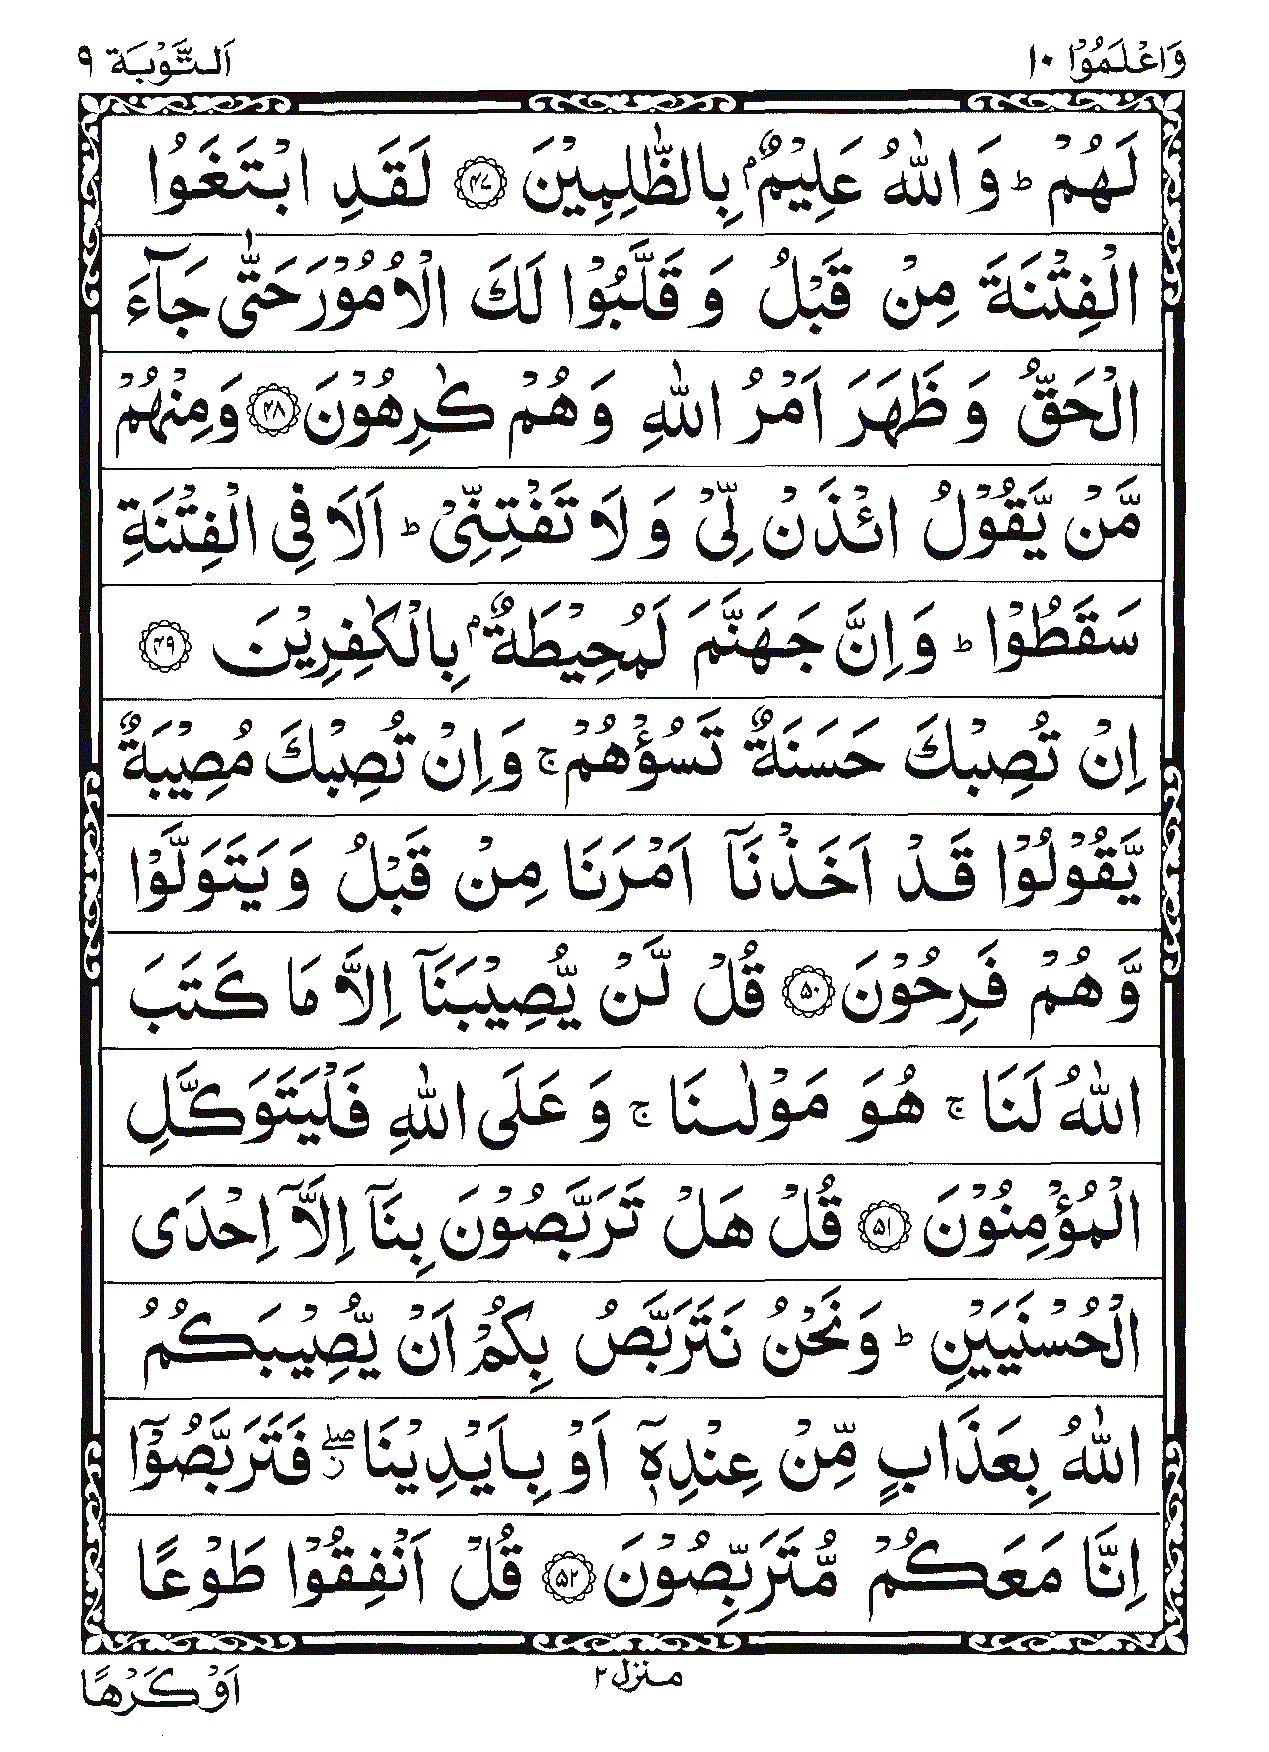 وَاعْلَمُوْۤا ١٠
اَلتَّوْبَة ٩
لَهُمْ ؕ وَ اللّٰهُ عَلِيْمٌۢ بِالظّٰلِمِيْنَ ﴿۴۷﴾ لَقَدِ ابْتَغَوُا
الْفِتْنَةَ مِنْ قَبْلُ وَ قَلَّبُوْا لَكَ الْاُمُوْرَ حَتّٰى جَآءَ
الْحَقُّ وَ ظَهَرَ اَمْرُ اللّٰهِ وَ هُمْ كٰرِهُوْنَ ﴿۴۸﴾ وَمِنْهُمْ
مَّنْ يَّقُوْلُ ائْذَنْ لِّىْ وَ لَا تَفْتِنِّىْ ؕ اَلَا فِى الْفِتْنَةِ
سَقَطُوْا ؕ وَ اِنَّ جَهَنَّمَ لَمُحِيْطَةٌۢ بِالْكٰفِرِيْنَ ﴿۴۹﴾
اِنْ تُصِبْكَ حَسَنَةٌ تَسُؤْهُمْ ۚ وَاِنْ تُصِبْكَ مُصِيْبَةٌ
يَّقُوْلُوْا قَدْ اَخَذْنَاۤ اَمْرَنَا مِنْ قَبْلُ وَ يَتَوَلَّوْا
وَّ هُمْ فَرِحُوْنَ ﴿۵۰﴾ قُلْ لَّنْ يُّصِيْبَنَاۤ اِلَّا مَا كَتَبَ
اللّٰهُ لَنَا ۚ هُوَ مَوْلٰىنَا ۚ وَ عَلَى اللّٰهِ فَلْيَتَوَكَّلِ
الْمُؤْمِنُوْنَ ﴿۵۱﴾ قُلْ هَلْ تَرَبَّصُوْنَ بِنَاۤ اِلَّاۤ اِحْدَى
الْحُسْنَيَيْنِ ؕ وَ نَحْنُ نَتَرَبَّصُ بِكُمْ اَنْ يُّصِيْبَكُمُ
اللّٰهُ بِعَذَابٍ مِّنْ عِنْدِهٖۤ اَوْ بِاَيْدِيْنَا ۖ فَتَرَبَّصُوْۤا
اِنَّا مَعَكُمْ مُّتَرَبِّصُوْنَ ﴿۵۲﴾ قُلْ اَنْفِقُوْا طَوْعًا
منزل ٢
اَوْ كَرْهًا